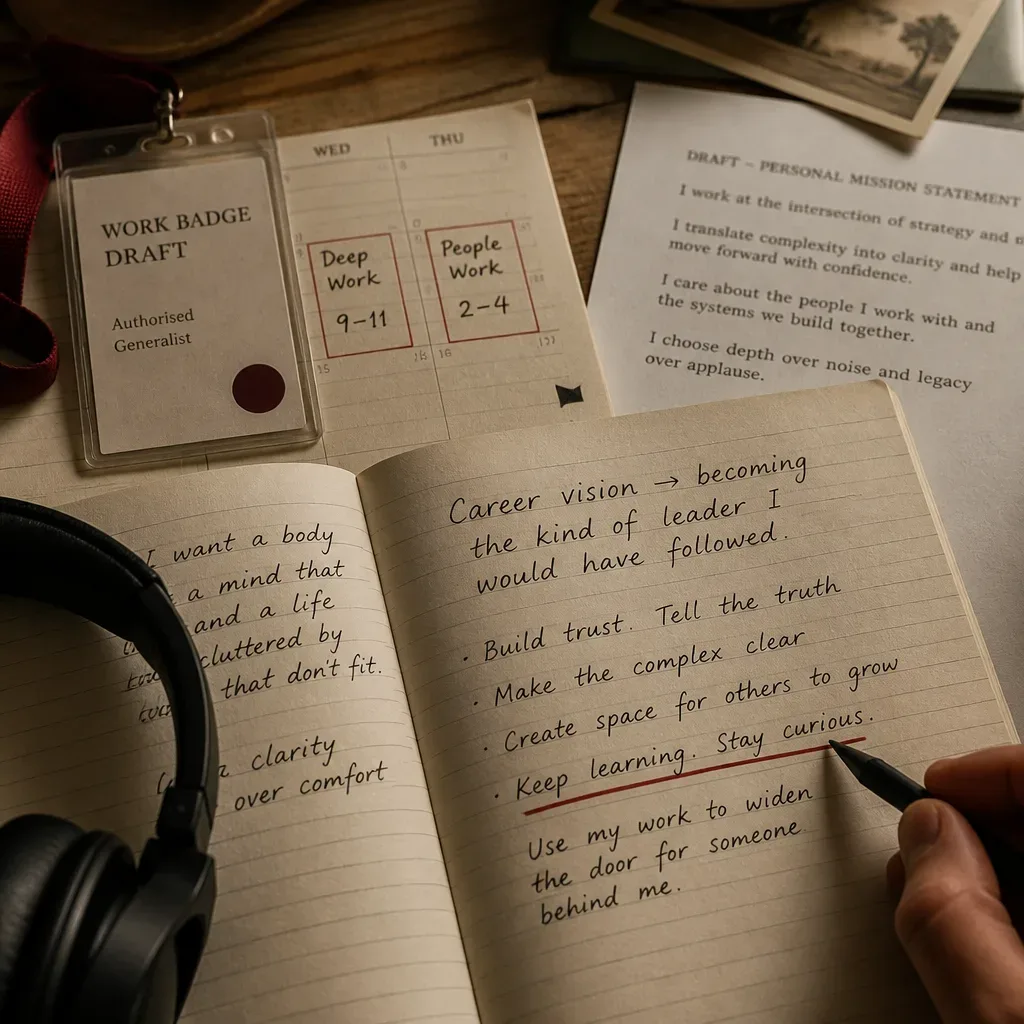 WORK BADGE
DRAFT
Authorised
Generalist
WED
THU
Deep
Work
9–11
People
Work
2–4
15
16
DRAFT – PERSONAL MISSION STATEMENT
I work at the intersection of strategy and
I translate complexity into clarity and help
move forward with confidence.
I care about the people I work with and
the systems we build together.
I choose depth over noise and legacy
over applause.
I want a body
a mind that
and a life
cluttered by
that don't fit.
clarity
over comfort
Career vision → becoming
the kind of leader I
would have followed.
· Build trust. Tell the truth
· Make the complex clear
· Create space for others to grow
· Keep learning. Stay curious.
Use my work to widen
the door for someone
behind me.